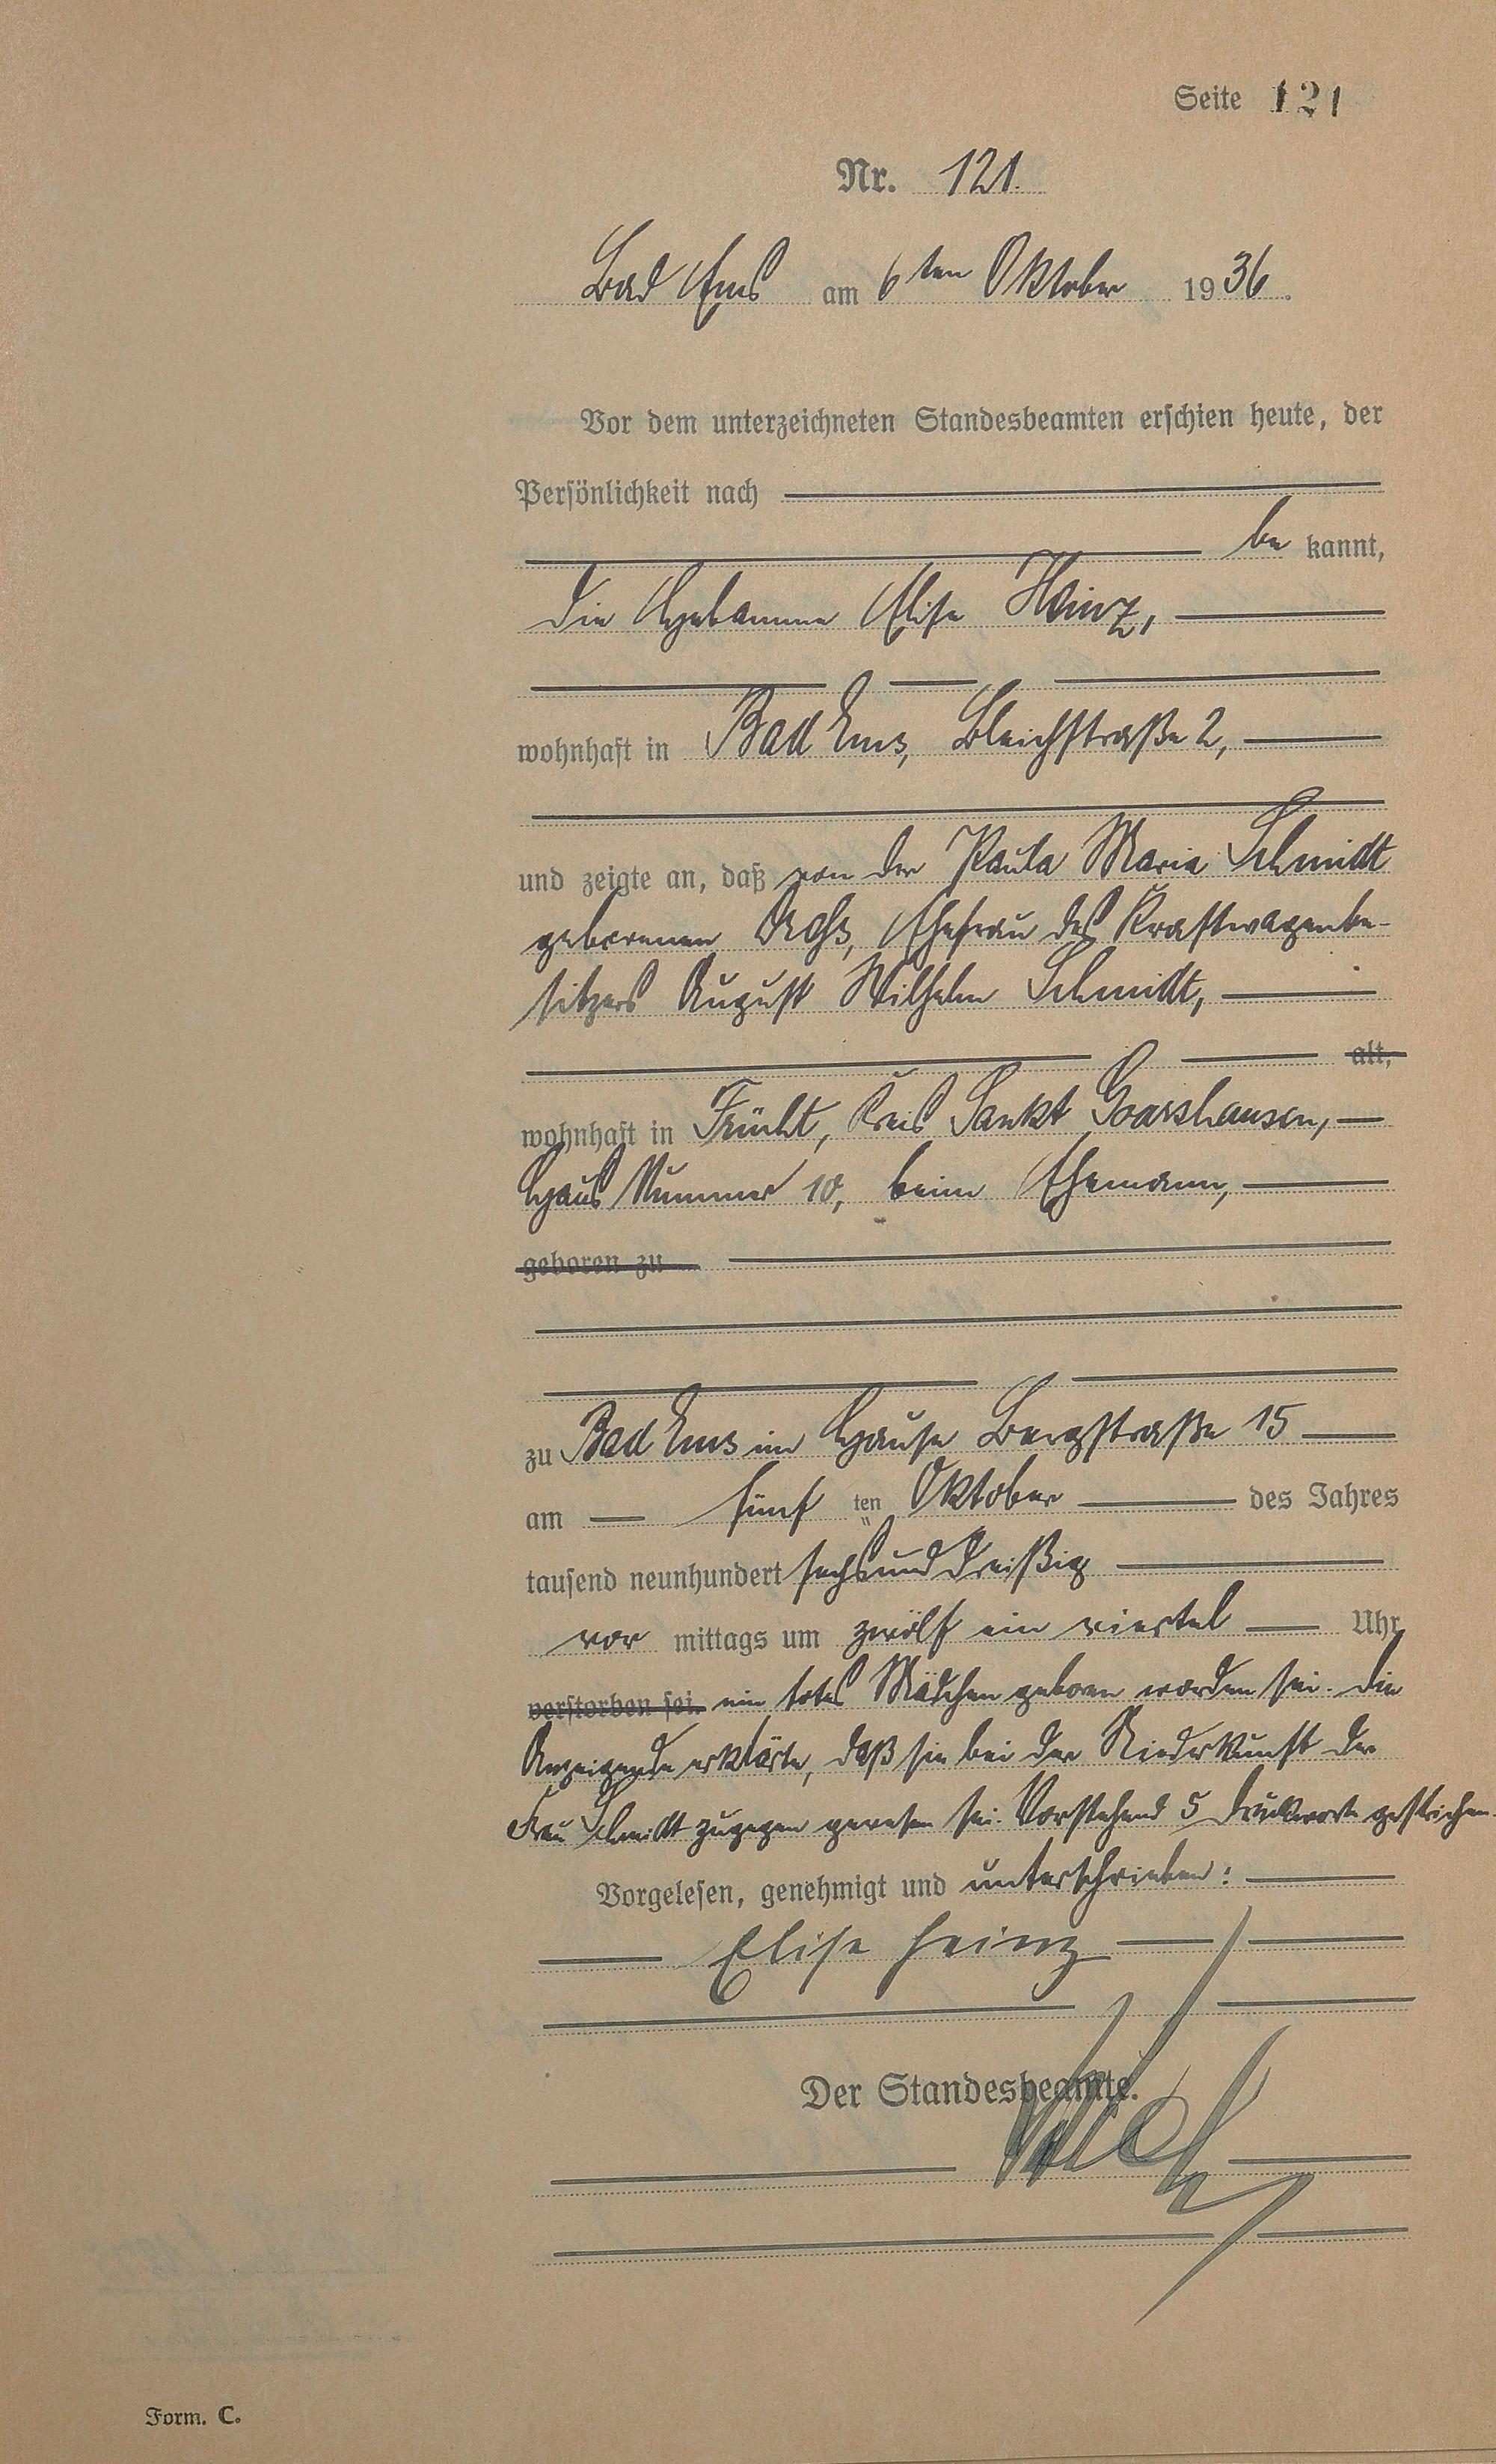 Seite 121
Nr. 121.
Bad Ems am 6ten Oktober 1936.
Vor dem unterzeichneten Standesbeamten erschien heute, der
Persönlichkeit nach
be kannt,
die Hebamme Elise Heinz,
wohnhaft in Bad Ems, Bleichstraße 2,
und zeigte an, daß von der Paula Maria Schmidt
geborenen, Ehefrau des Kraftwagenbe-
sitzers August Wilhelm Schmidt,
alt,
wohnhaft in Frücht, Kreis Sankt Goarshausen,
Haus Nummer 10, beim Ehemann,
geboren zu
zu Bad Ems im Hause Bergstraße 15
am fünf ten Oktober des Jahres
tausend neunhundert sechsunddreißig
vor mittags um zwölf ein viertel Uhr
verstorben sei. ein totes Mädchen geboren worden sei. Die
Anzeigende erklärte, daß sie bei der Niederkunft der
Frau Schmidt zugegen gewesen sei. Vorstehend 5 Druckworte gestrichen.
Vorgelesen, genehmigt und unterschrieben:
Elise Heinz
Der Standesbeamte.
Form. C.